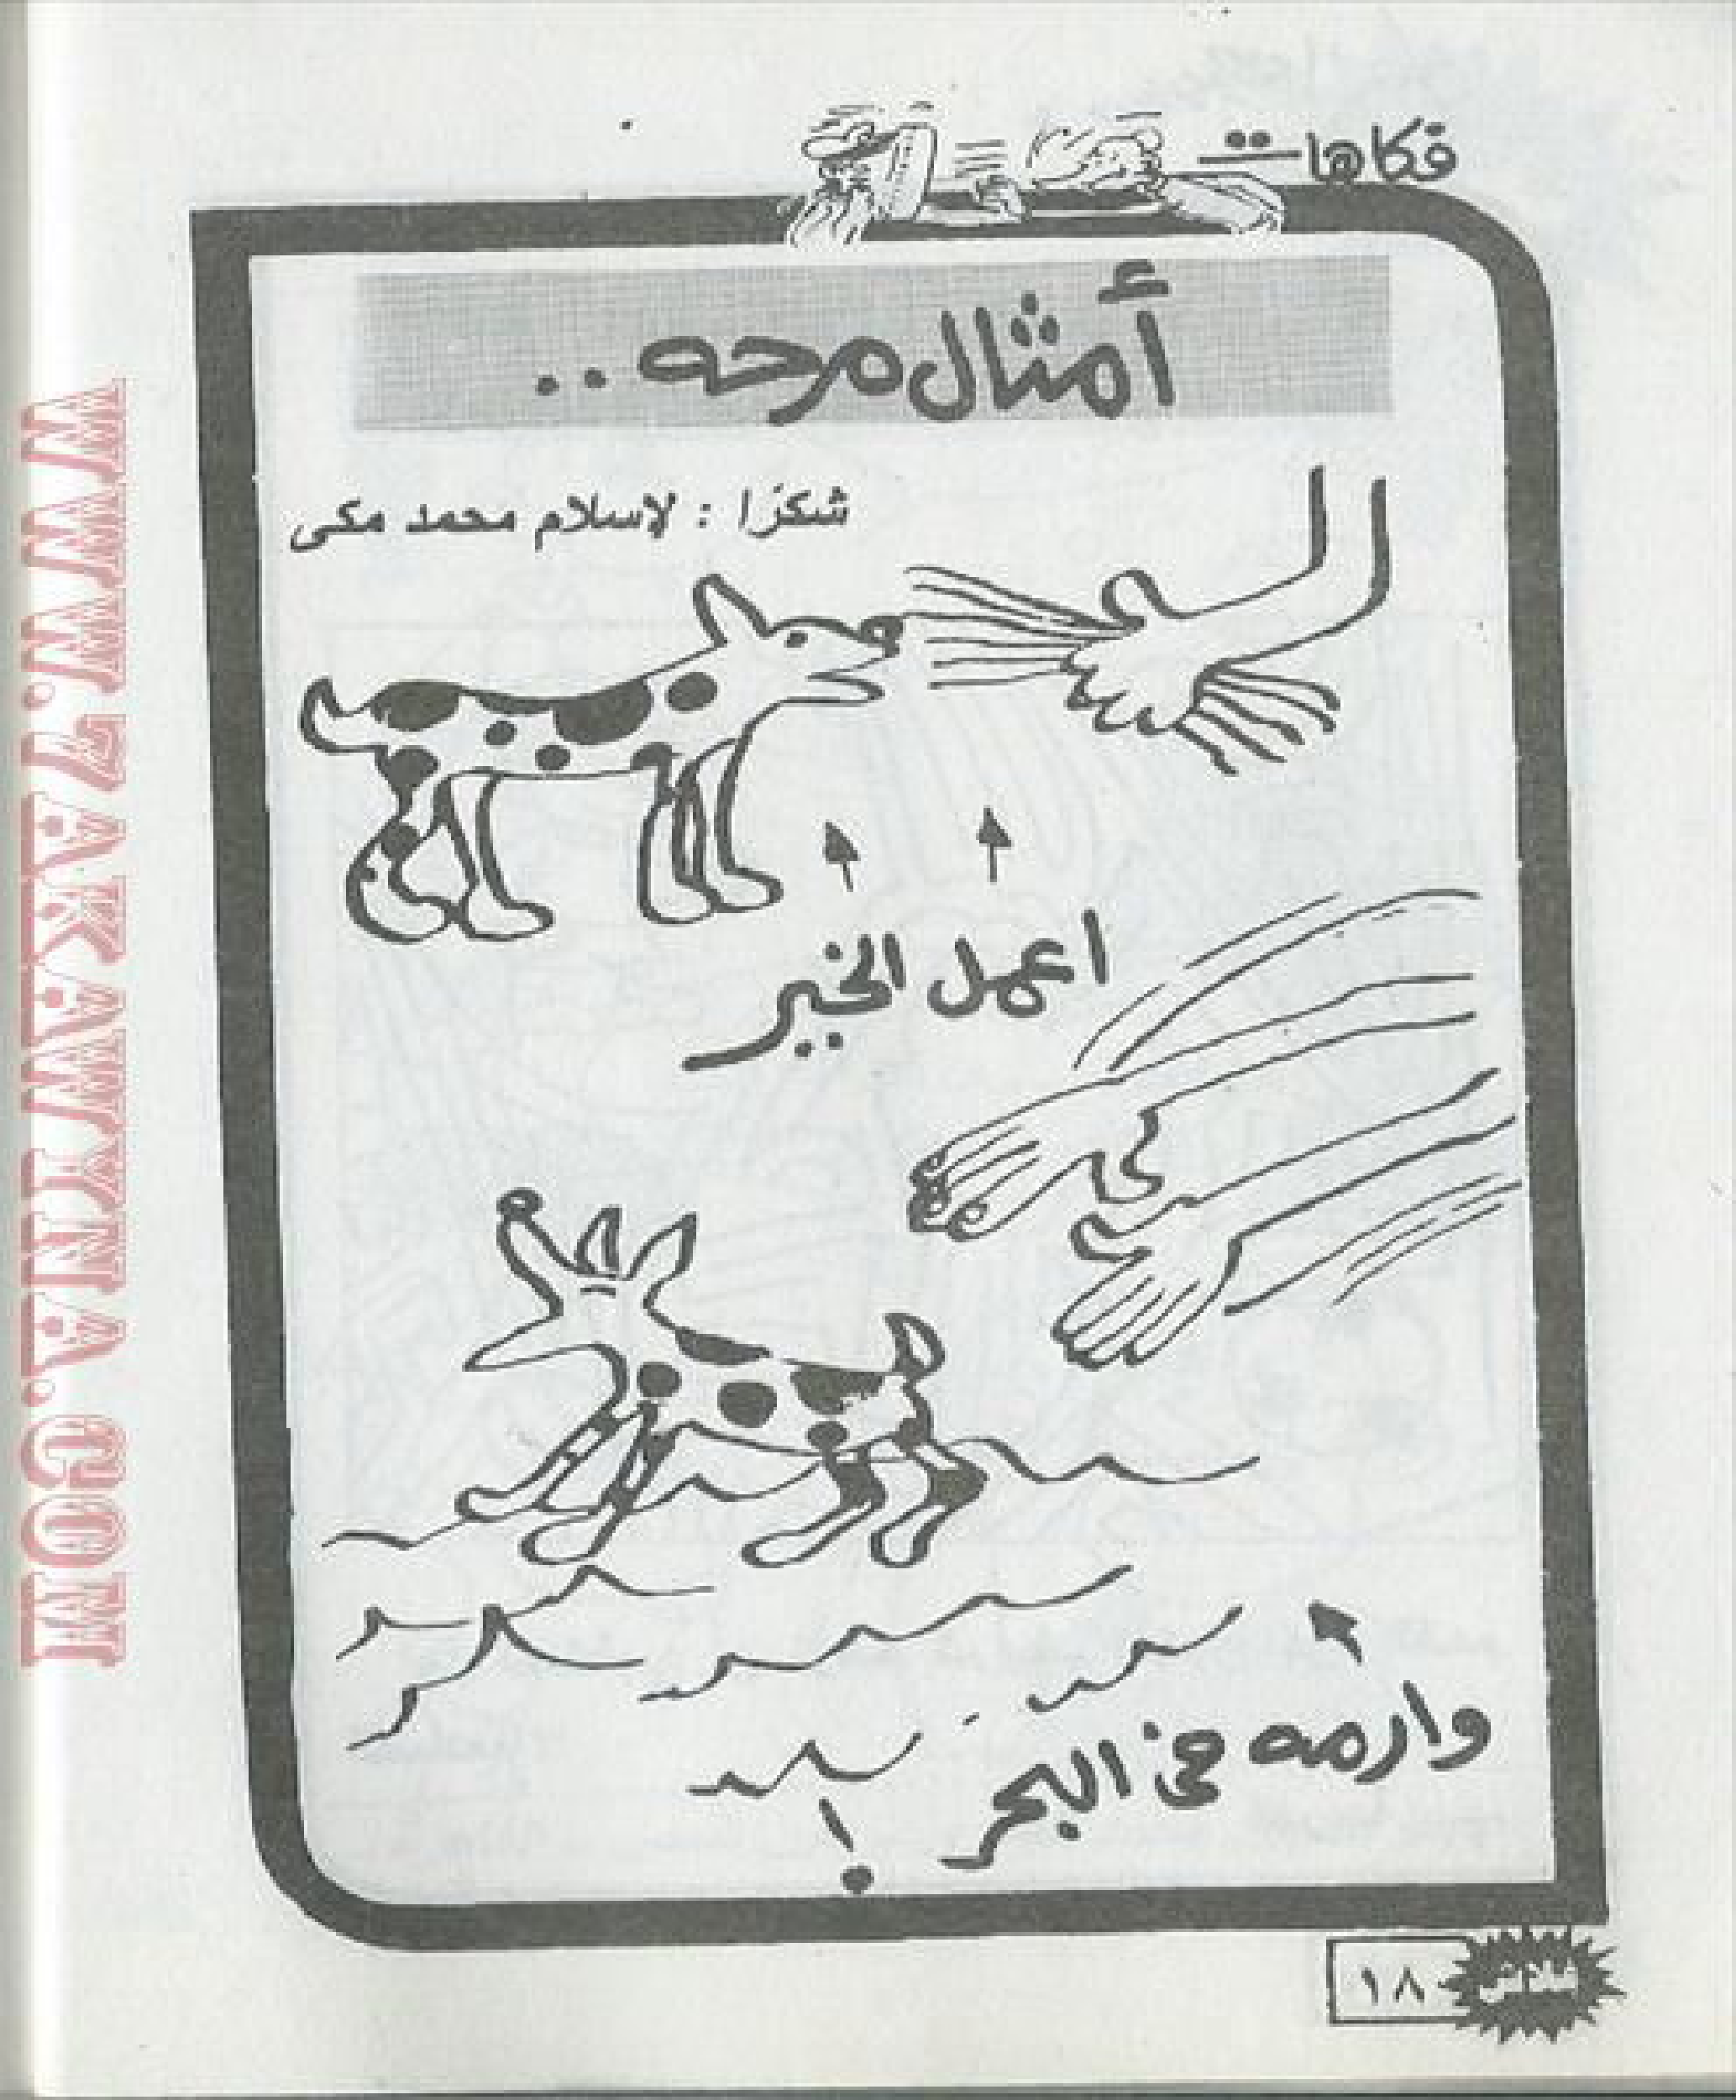 فكاهات
أمثال مرحه ..
شكرًا : لإسلام محمد مكى
اعمل الخير
وارمه فى البحر
!
١٨
WWW.7AKAWINA.COM